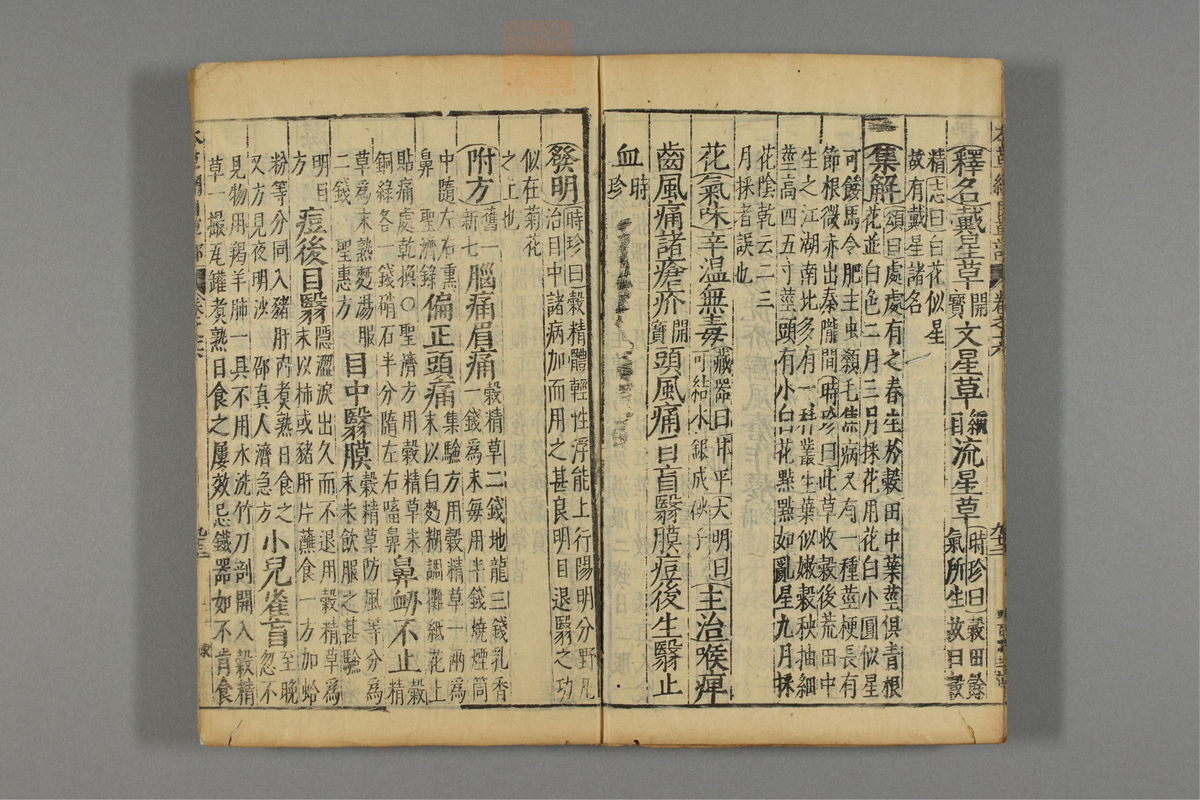 釋名戴星草開寶文星草綱目流星草時珍曰穀田餘氣所生故曰穀
精志曰白花似星
故有戴星諸名
集解頌曰處處有之春生於穀田中葉莖俱青根
花並白色二月三月採花用花白小圓似星
可餧馬令肥主虫顙毛焦病又有一種莖梗長有
節根微赤出秦隴間時珍曰此草收穀後荒田中
生之江湖南北多有一科叢生葉似嫩穀秧抽細
莖高四五寸莖頭有小白花點點如亂星九月採
花陰乾云二三
月採者誤也
花氣味辛温無毒藏器曰甘平大明曰可結水銀成砂子主治喉痺
齒風痛諸瘡疥開寶頭風痛目盲翳膜痘後生翳止
血時珍
發明時珍曰穀精體輕性浮能上行陽明分野凡
治目中諸病加而用之甚良明目退翳之功
似在菊花
之上也
附方舊一新七腦痛眉痛穀精草二錢地龍三錢乳香
一錢爲末每用半錢燒煙筒
中隨左右熏
鼻聖濟錄偏正頭痛集驗方用穀精草一兩爲
末以白麪糊調攤紙花上
貼痛處乾換○聖濟方用穀精草末
銅綠各一錢硝石半分隨左右㗜鼻鼻衂不止穀精
草爲末熟麪湯服
二錢聖惠方目中翳膜穀精草防風等分爲
末米飲服之甚驗
明目
方痘後目翳隱澀淚出久而不退用穀精草爲
末以柿或豬肝片蘸食一方加蛤
粉等分同入豬肝內煮熟日食之
又方見夜明沙邵真人濟急方小兒雀盲至晚
忽不
見物用羯羊肝一具不用水洗竹刀剖開入穀精
草一撮瓦罐煮熟日食之屢效忌鐵器如不肯食